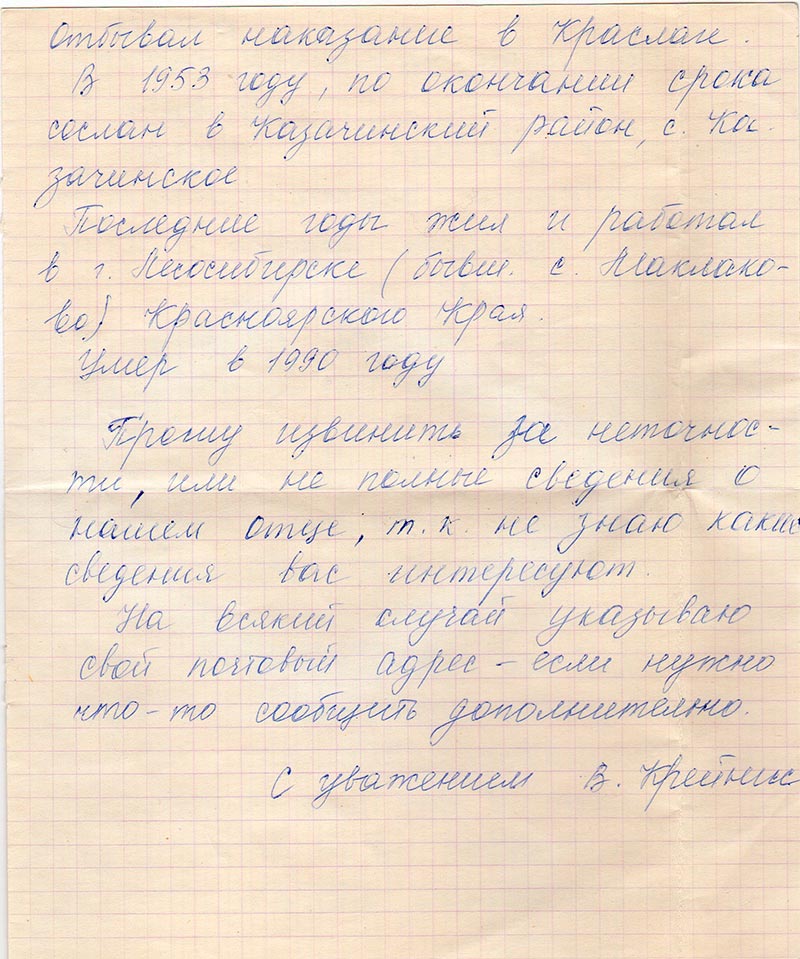 Отбывал наказание в Краслаге.
В 1953 году, по окончании срока
сослан в Казачинский район, с. Ка-
зачинское
Последние годы жил и работал
в г. Лесосибирске (бывш. с. Маклако-
во) Красноярского Края.
Умер в 1990 году
Прошу извинить за неточнос-
ти, или не полные сведения о
нашем отце, т.к. не знаю какие
сведения вас интересуют.
На всякий случай указываю
свой почтовый адрес – если нужно
что-то сообщить дополнительно.
С уважением В.